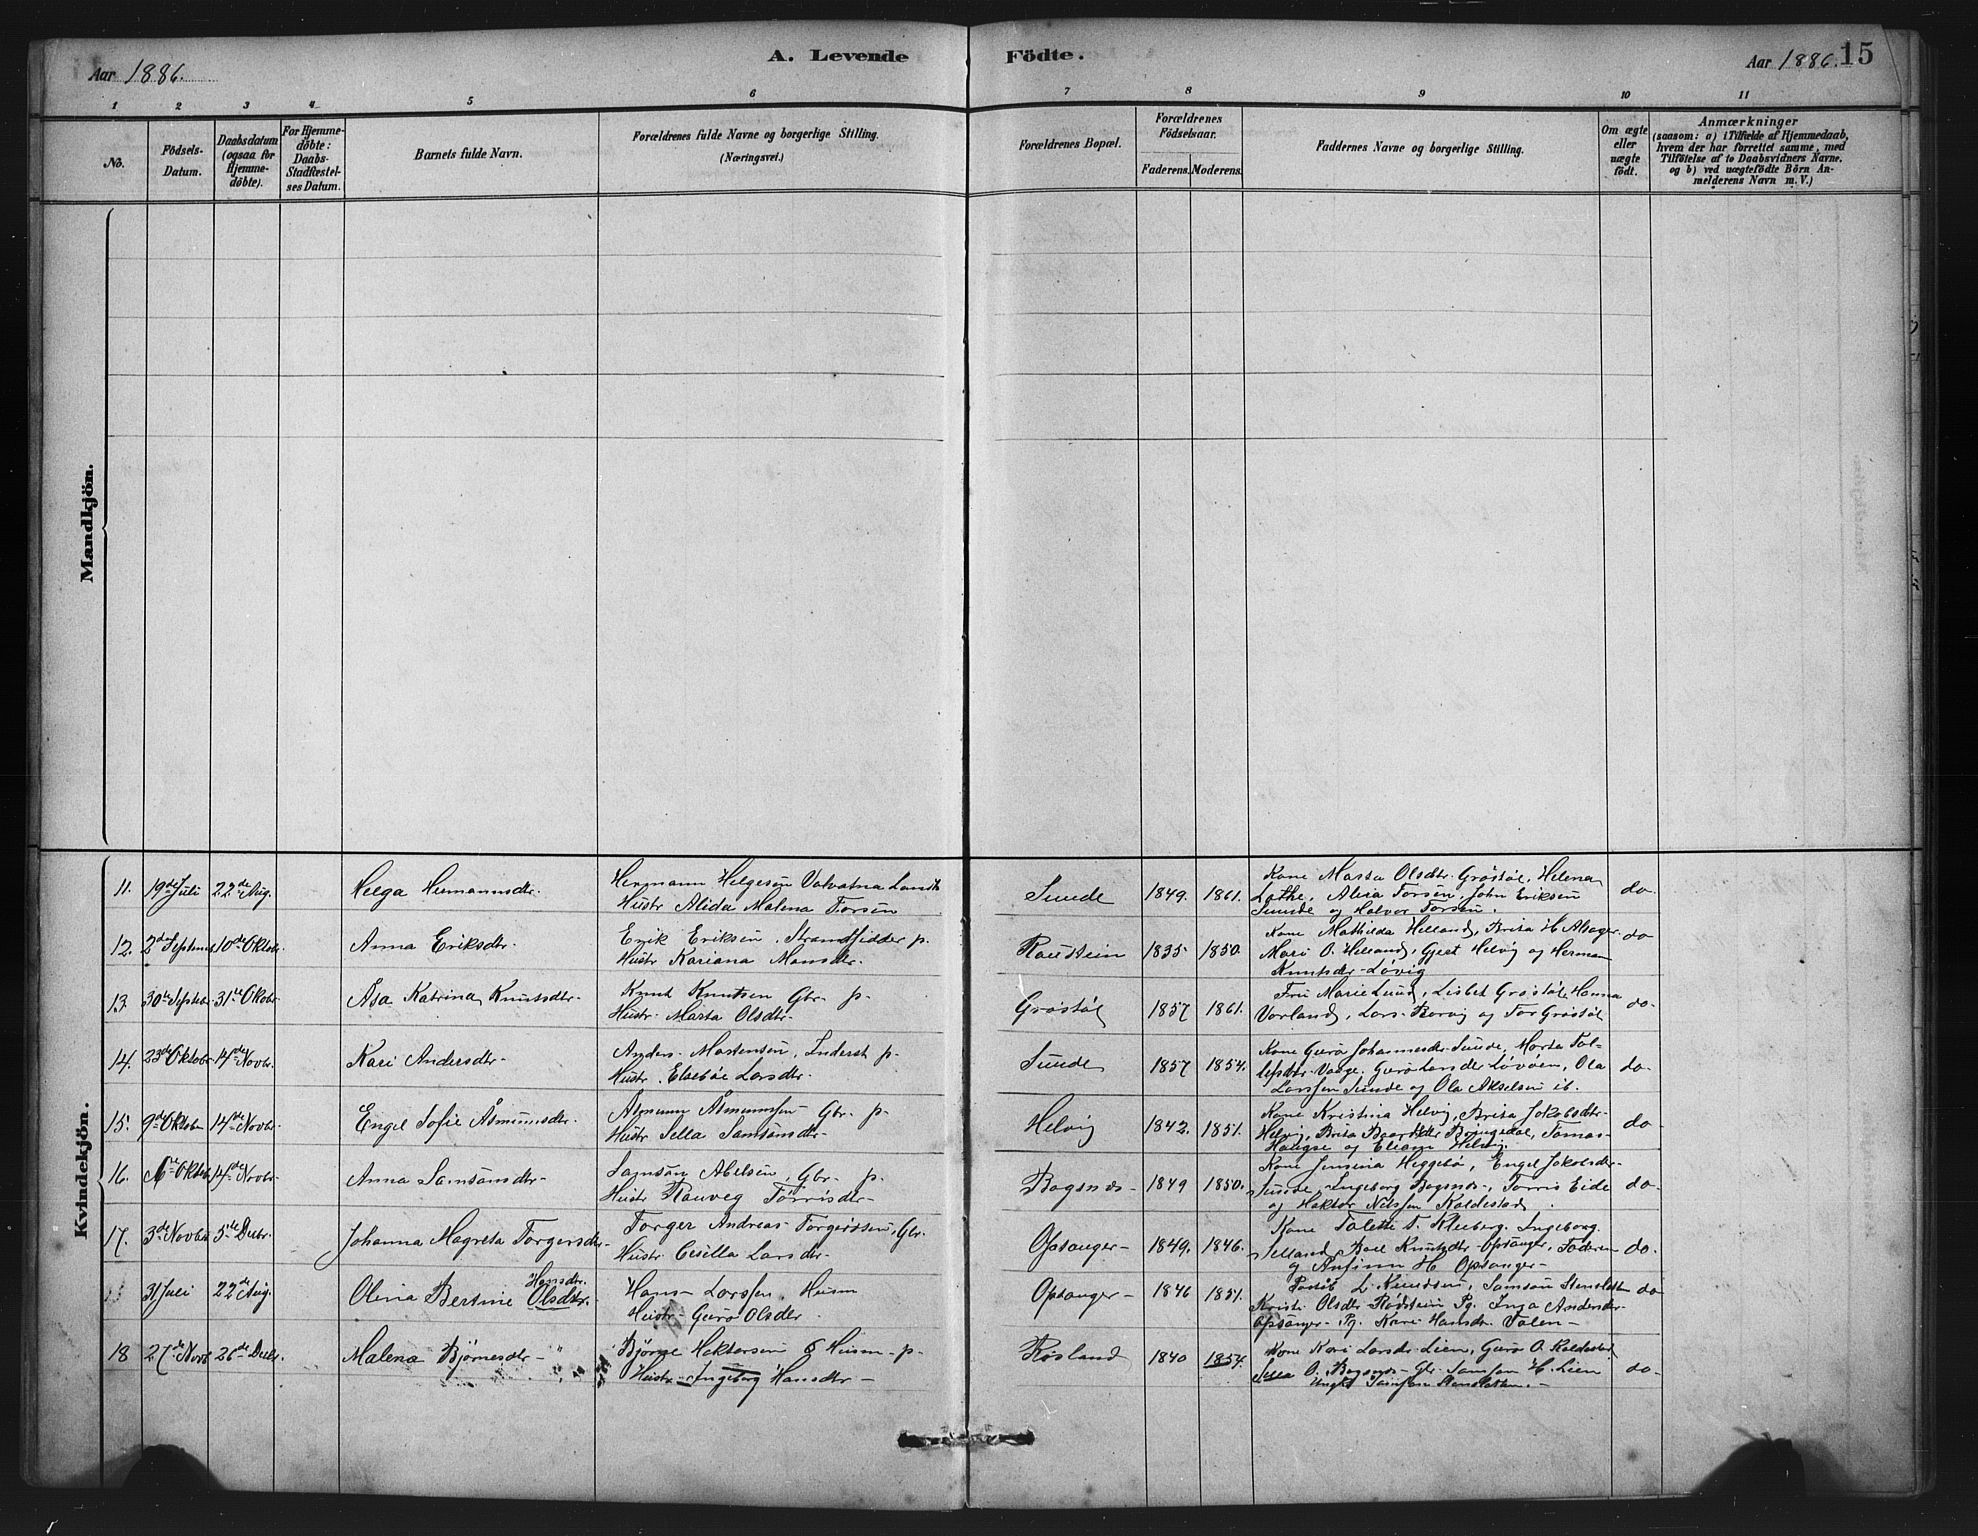 Aar 1886.
A. Levende
Födte.
Aar 1886.
15
1 2 3 4 5 6 7 8 9 10 11
No.
Födsels-
Datum.
Daabsdatum
(ogsaa for
Hjemme-
döbte).
For Hjemme-
döbte:
Daabs-
Stadfæstel-
ses Datum.
Barnets fulde Navn.
Forældrenes fulde Navne og borgerlige Stilling.
(Næringsvei.)
Forældrenes Bopæl.
Forældrenes
Födselsaar.
Faderens. Moderens.
Faddernes Navne og borgerlige Stilling.
Om ægte
eller
uægte
födt.
Anmærkninger
(saasom: a) i Tilfælde af Hjemmedaab,
hvem der har forrettet samme, med
Tilföielse af to Daabsvidners Navne.
og b) ved uægtefödte Börn An-
melderens Navn m. V.)
Mandkjön.
Kvindekjön.
11. 19de Juli 22de Aug. Helga Hermannsdtr.
Hermann Helgesen Valvatna
Hustr Alida Malena Torsen
Sunde 1849. 1861.
Kone Marta Olsdtr. Grøstøl, Helena
Lothe, Torsen, John Eriksen
Sunde og Halvor Torsen.
do-
12. 2de Septemr 10de Oktobr. Anna Eriksdtr.
Erik Eriksen, Strandsidder p.
Hustr Kariana Monsdtr.
Raustein 1835 1850.
Kone Mathilda Helland, Brita H.
Mari O. Helland, Gjert Helvig og Herman
Løvig
do
13. 30te Septebr 31te Okobr Åsa Katrina Knutsdtr-
Knut Knutsen Gbr- p-
Hustr. Marta Olsdtr-
Grøstøl 1857 1861.
Fru Marie Lund, Lisbet Grøstøl, Hanna
Vorland, Lars og Tor Grøstøl
do-
14. 23de Oktobr 14de Novbr. Kari Andersdtr-
Anders Mortensen, Inderst p-
Hustr. Elsebøe Larsdtr.
Sunde 1857 1854.
Kone Guro Johannesdtr Sunde, Marta Tol-
Guro Larsdtr Løvåen, Ola
Larssen Sunde og Ola Akselsen ib.
do-
15. 9de Oktobr 14de Novbr- Engel Sofie Åsmunsdtr.
Åsmunn Åsmunnsen- Gbr- p-
Hustr Sella Samsonsdtr-
Helvig 1842. 1851.
Kone Kristina Helvig, Brita Jakobsdtr-
Helvig, Brita Tomas-
og Helvig
do-
16. Oktobr 14de Novbr- Anna Samsonsdtr-
Samson Abelsen, Gbr- p-
Hustr Rauveg Torrisdtr-
Bogsnes- 1849 1850.
Kone Jensina Heggebø, Engel Jakobsdtr-
Sunde, Ingeborg Bogsnes-, Torris Eide
og Haktor Nilssen Kaldestad
do-
17. 3de Novbr 5te Decbr. Johanna Magreta Torgersdtr-
Torger Andreas Torgerssen, Gbr.
Hustr Cesilla Larsdtr-
Opsanger- 1849. 1846.
Kone T. Kleiberg. Ingeborg
Knutsdtr Opsanger, Faderen
og Anfinn H. Opsanger-
do.
31 Juli 22de Aug. Olina Bertine Olsdtr. Hansdtr.
Hans Larssen, Husm
Hustr- Guro Olsdtr
Opsanger- 1846 1851.
L. Knudsen, Samson
Kristi Olsdtr Rødstein Pg. Inga Andersdtr-
Opsanger- Pg. Kari Hansdtr Valen-
do
18 27de Novb 26de Decbr. Malena Bjørnesdtr-
Bjørne Haktorsen Husm- p-
Hustr- Ingeborg Hansdtr-
Røsland 1840 1854.
Kone Kari Larsdr Lien, Guro O. Kaldestad
Sella O. Bogsnes- Gbr Samson H. Lien
Ungkl Samson
do-